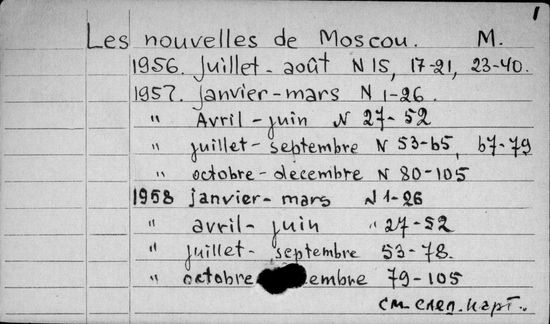 1
Les nouvelles de Moscou. M.
1956. juillet - août N 15, 17-21, 23-40.
1957. janvier - mars N 1-26.
" Avril - juin N 27-52
" juillet - septembre N 53-65, 67-79
" octobre - décembre N 80-105
1958 janvier - mars N 1-26
" avril - juin " 27-52
" juillet - septembre 53-78.
" octobre embre 79-105
см. след. карт..